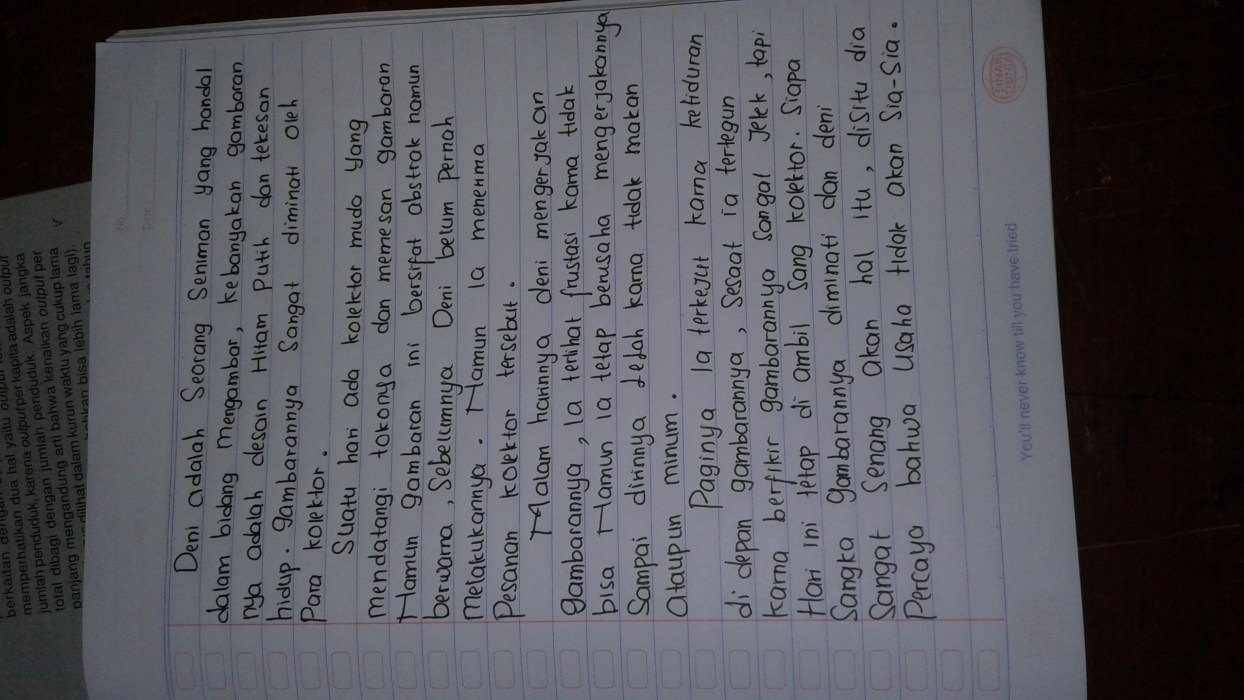 berkaitan dengan
memperhatikan dua hal yaitu output
jumlah penduduk, karena output per kapita adalah output
total dibagi dengan jumlah penduduk. Aspek jangka
panjang mengandung arti bahwa kenaikan output per
dilihat dalam kurun waktu yang cukup lama
bahkan bisa lebih lama lagi).
tahun
No.
Date
Deni adalah Seorang Seniman yang handal
dalam bidang Mengambar, kebanyakan gambaran
nya adalah desain Hitam Putih dan tekesan
hidup. gambarannya Sangat diminati Oleh
Para kolektor.
Suatu hari ada kolektor muda Yang
Mendatangi tokonya dan memesan gambaran
Namun gambaran ini bersifat abstrak namun
berwarna, Sebelumnya Deni belum Pernah
Melakukannya. Namun Ia menerima
Pesanan kolektor tersebut.
Malam harinnya deni mengerjakan
gambarannya, Ia terlihat frustasi karna tidak
bisa Namun ia tetap berusaha mengerjakannya
Sampai dirinnya Lelah karna tidak makan
Ataupun minum.
Paginya Ia terkejut karna ketiduran
di depan gambarannya, Sesaat ia tertegun
karna berfikir gambarannya Sangat Jelek, tapi
Hari ini tetap di ambil Sang kolektor. Siapa
Sangka gambarannya diminati dan deni
Sangat Senang akan hal itu, disitu dia
Percaya bahwa Usaha tidak akan Sia-Sia.
You'll never know till you have tried
SINAR
DUNIA